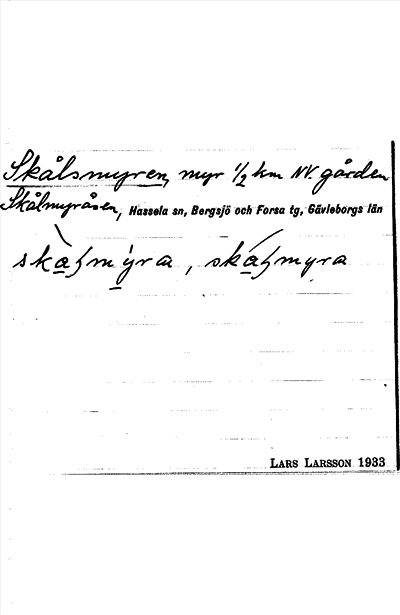 Skålsmyren, myr 1/2 km NV. gården
Skålmyråsen, Hassela sn, Bergsjö och Forsa tg, Gävleborgs län
LARS LARSSON 1933